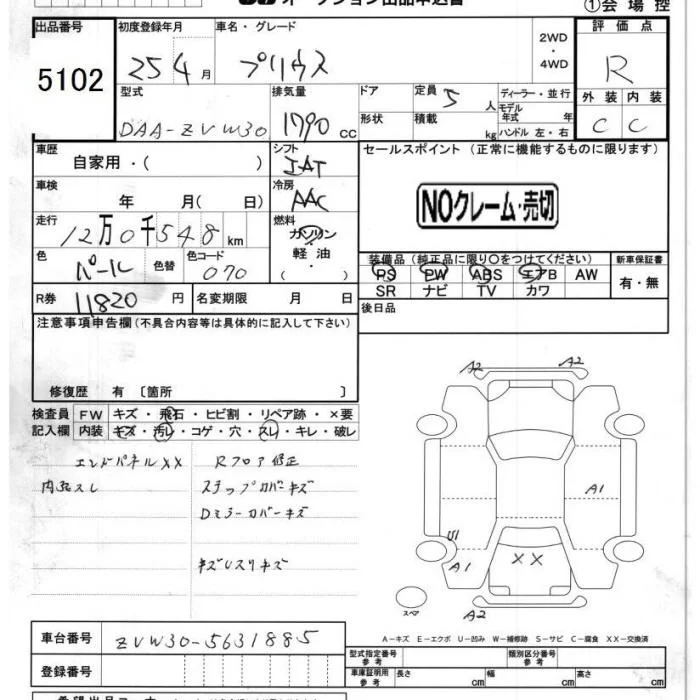 オークション出品申込書
①会場控
出品番号
5102
初度登録年月
25 4 月
車名・グレード
プリウス
2WD
・
4WD
評価点
R
外装 内装
C C
型式
DAA-ZVW30
排気量
1790 cc
ドア
形状
定員 5 人
積載 kg
ディーラー・並行
モデル年式 年
ハンドル 左・右
車歴
自家用・( )
シフト
IAT
セールスポイント (正常に機能するものに限ります)
NOクレーム・売切
車検
年 月( 日)
冷房
AAC
走行
12万0千548 km
燃料
ガソリン
・
軽油
・
( )
色
パール
色替
色コード
070
装備品 (純正品に限り○をつけてください)
PS PW ABS エアB AW
SR ナビ TV カワ
新車保証書
有・無
R券 11820 円
名変期限 月 日
後日品
注意事項申告欄(不具合内容等は具体的に記入して下さい)
修復歴 有 〔箇所 〕
検査員
記入欄
FW キズ・飛石・ヒビ割・リペア跡・×要
内装 キズ・汚れ・コゲ・穴・スレ・キレ・破レ
エンドパネルXX
Rフロア修正
内張スレ
ステップカバーキズ
Dミラーカバーキズ
キズUスリキズ
A2 A2
A1
U1
A1
XX
スペア
A2
A-キズ E-エクボ U-凹み W-補修跡 S-サビ C-腐食 XX-交換済
車台番号
ZVW30-5631885
登録番号
型式指定番号
参考
類別区分番号
参考
車庫証明用
参考
長さ cm
幅 cm
高さ cm
希望出品コーナー